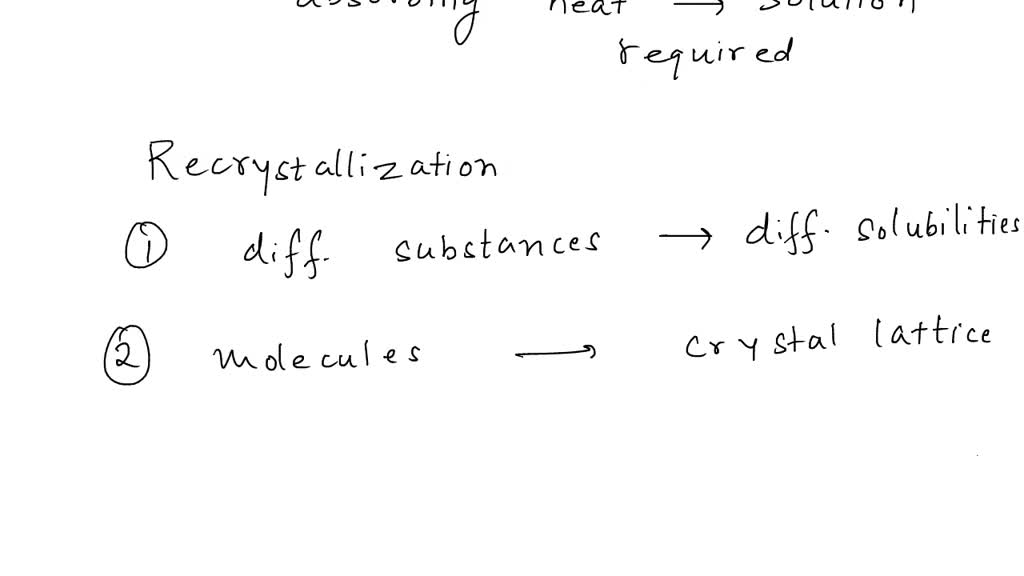 absorbing heat → solution
required
Recrystallization
① diff. substances → diff. solubilities
② molecules → crystal lattice